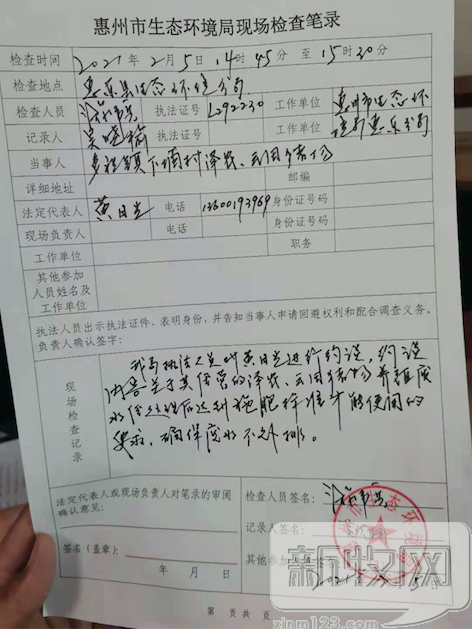 惠州市生态环境局现场检查笔录
检查时间 2021年2月5日14时45分至15时30分
检查地点 惠东县生态环境分局
检查人员 执法证号 L292230 工作单位 惠州市生态环
记录人 执法证号 工作单位 境局惠东分局
当事人 多祝镇下埔村泽发、云国猪场
详细地址 邮编
法定代表人 黄日光 电话 13600193969 身份证号码
现场负责人 电话 身份证号码
工作单位 职务
其他参加
人员姓名及
工作单位
执法人员出示执法证件、表明身份，并告知当事人申请回避权利和配合调查义务。
负责人确认签字：
现场检查记录
我局执法人员对黄日光进行约谈，约谈
内容关于其经营的泽发、云国猪场养殖废
水经处理后达到施肥标准才能使用的
要求，确保废水不外排。
法定代表人或现场负责人对笔录的审阅
确认意见：
签名（盖章）：
年 月 日
检查人员签名：
记录人签名：
其他参加人员
2021
第 页共 页
新肥网
xinm123.com